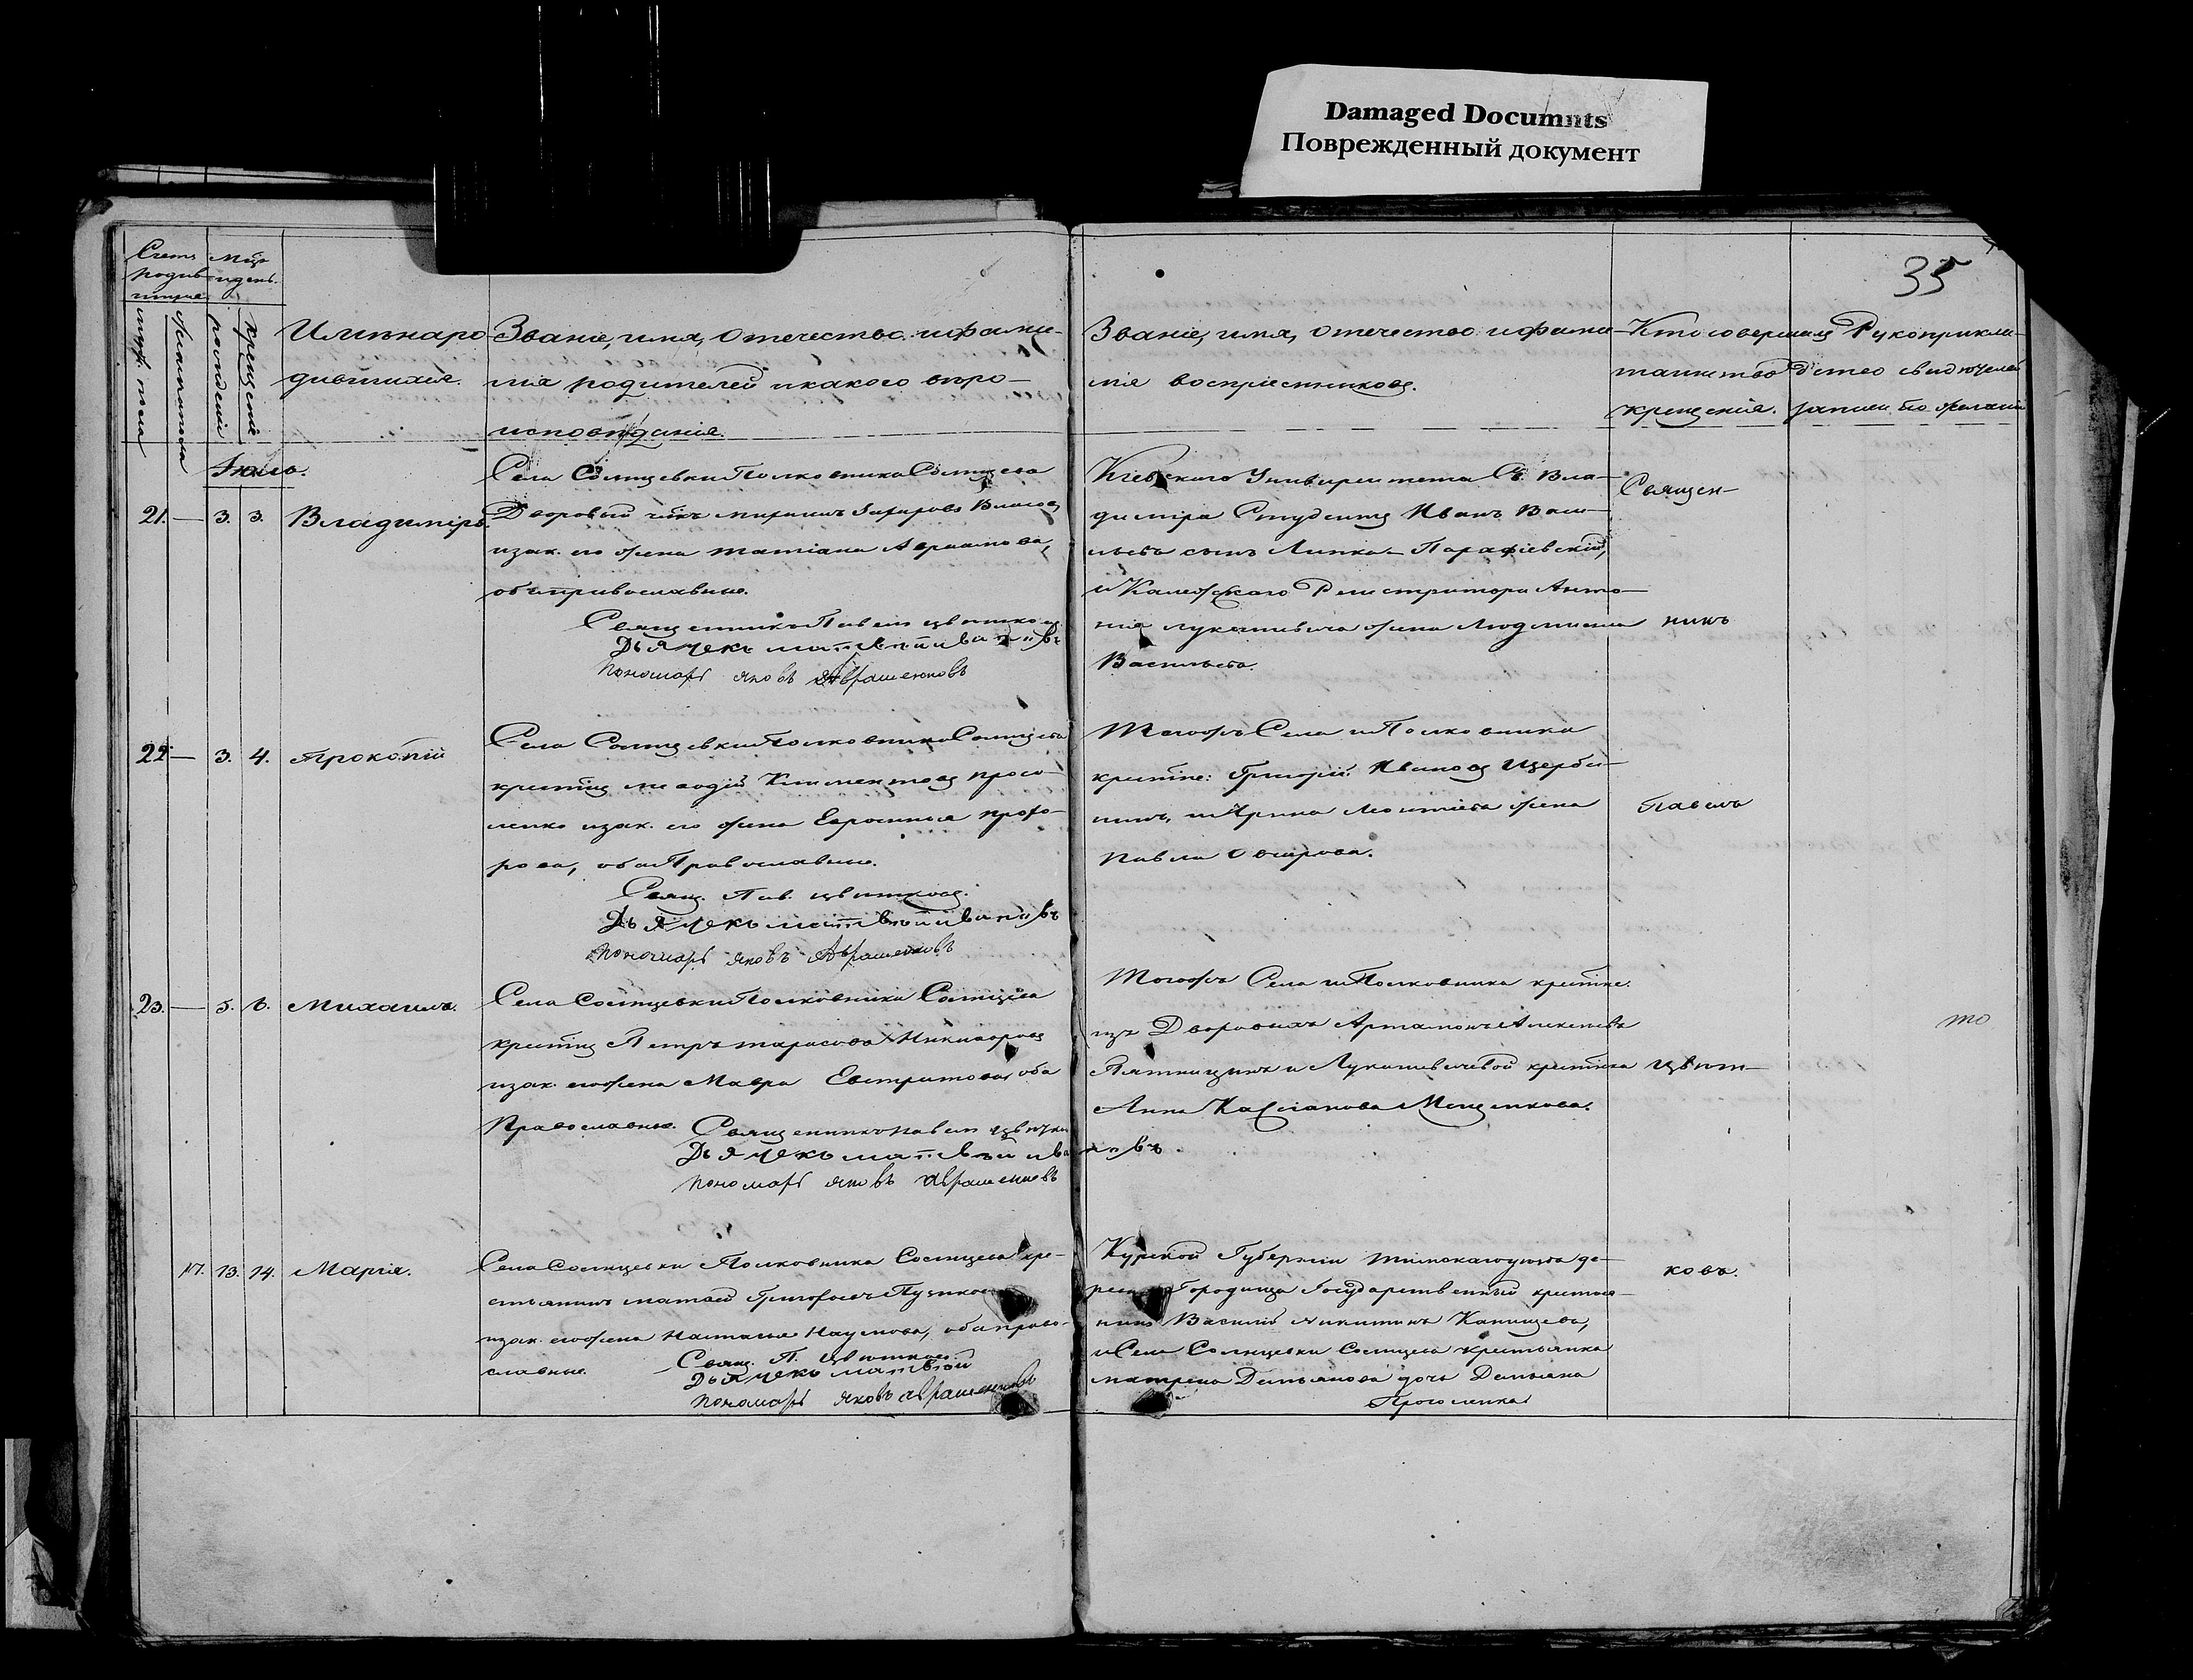 Damaged Documnts
Поврежденный документ
35
Счетъ
родив
шихся
Мцъ
и день
мужеска пола
женска пола
рожденія
крещенія
Имя наро
дившихся.
Званіе, имя, отечество и фами-
лія родителей и какого вѣро-
исповѣданія.
Званіе, имя, отечество и фами
лія воспріемниковъ.
Кто совершалъ
таинство
крещенія.
Рукоприкла-
дство свидѣтелей
записи по желанію
Іюль.
21. — 3. 3. Владиміръ.
Села Солнцевки Полковника Солнцева
Дворовый
изак. его жена Татіана Авраамова,
оба православные.
Священникъ Павелъ Цвѣтковъ.
Дьячекъ Матвѣй Ивановъ
Пономарь Яковъ Авраменковъ
Кіевскаго Университета Св. Вла-
диміра Студентъ Иванъ Васи-
льевъ сынъ Липка-Парафіевскій,
и Коллежскаго Регистратора Анто-
нія Лукашевича жена Людмила
Васильева.
Священ-
никъ
22 — 3. 4. Прокопій
Села Солнцевки Полковника Солнцева
крестнъ Меѳодій Климентовъ Просо-
ленко изак. его жена Евросинія Прохо-
рова, оба Православные.
Свящ. Пав. Цвѣтковъ.
Дьячекъ Матвѣй Ивановъ
Пономарь Яковъ Авраменковъ
Тогожъ Села и Полковника
крестне: Григорій Ивановъ Щерби-
нинъ, и Ирина Леонтіева жена
Павла
Павелъ
23. — 5. 6. Михаилъ.
Села Солнцевки Полковника Солнцева
крестнъ Петръ Тарасовъ Никифоровъ
изак. его жена Мавра Евстратова, оба
Православные. Священникъ Павелъ Цвѣтков
Дьячекъ Матвѣй Ивановъ
Пономарь Яковъ Авраменковъ
Тогожъ Села и Полковника крестне.
изъ Дворовыхъ Артамонъ Алексѣевъ
Пятницынъ и Лукашевичевой крестнка
Анна Касіанова Мещенкова.
Цвѣт-
то
17. 13. 14. Марія.
Села Солнцевки Полковника Солнцева кре-
стьянинъ Матвѣй Григорьевъ
изак. его жена Наталья Наумова, оба право-
славные.
Свящ. П. Цвѣтковъ.
Дьячекъ Матвѣй
Пономарь Яковъ Авраменковъ
Курской Губерніи Тимскаго уѣзда де-
ревни Городища Государственный крестья-
нинъ Василій Никитинъ Капищевъ,
и Села Солнцевки Солнцева крестьянка
Матрена Демьянова дочь Демьяна
Просоленка
ковъ.